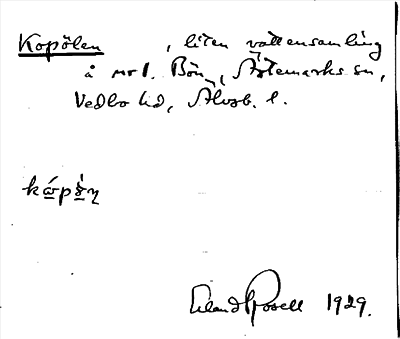 Kopölen , liten vattensamling
å nr 1. Bön, Ärtemarks sn,
Vedbo hd, Älvsb. l.
Erland Rosell 1929.